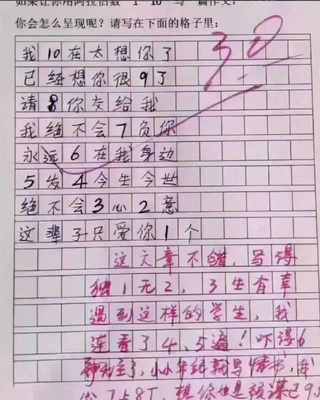 如果让你用阿拉伯数 1 10 写一篇作文，
你会怎么呈现呢？请写在下面的格子里：
30
我10在太想你了
已经想你很9了
请8你交给我
我绝不会7负你
永远6在我身边
5发4今生今世
绝不会3心2意
这辈子只爱你1个
这文章不错，写得
独1无2，3生有幸
遇到这样的学生，我
连看了4、5遍！吓得6
神无主了，小小年纪就写情书，